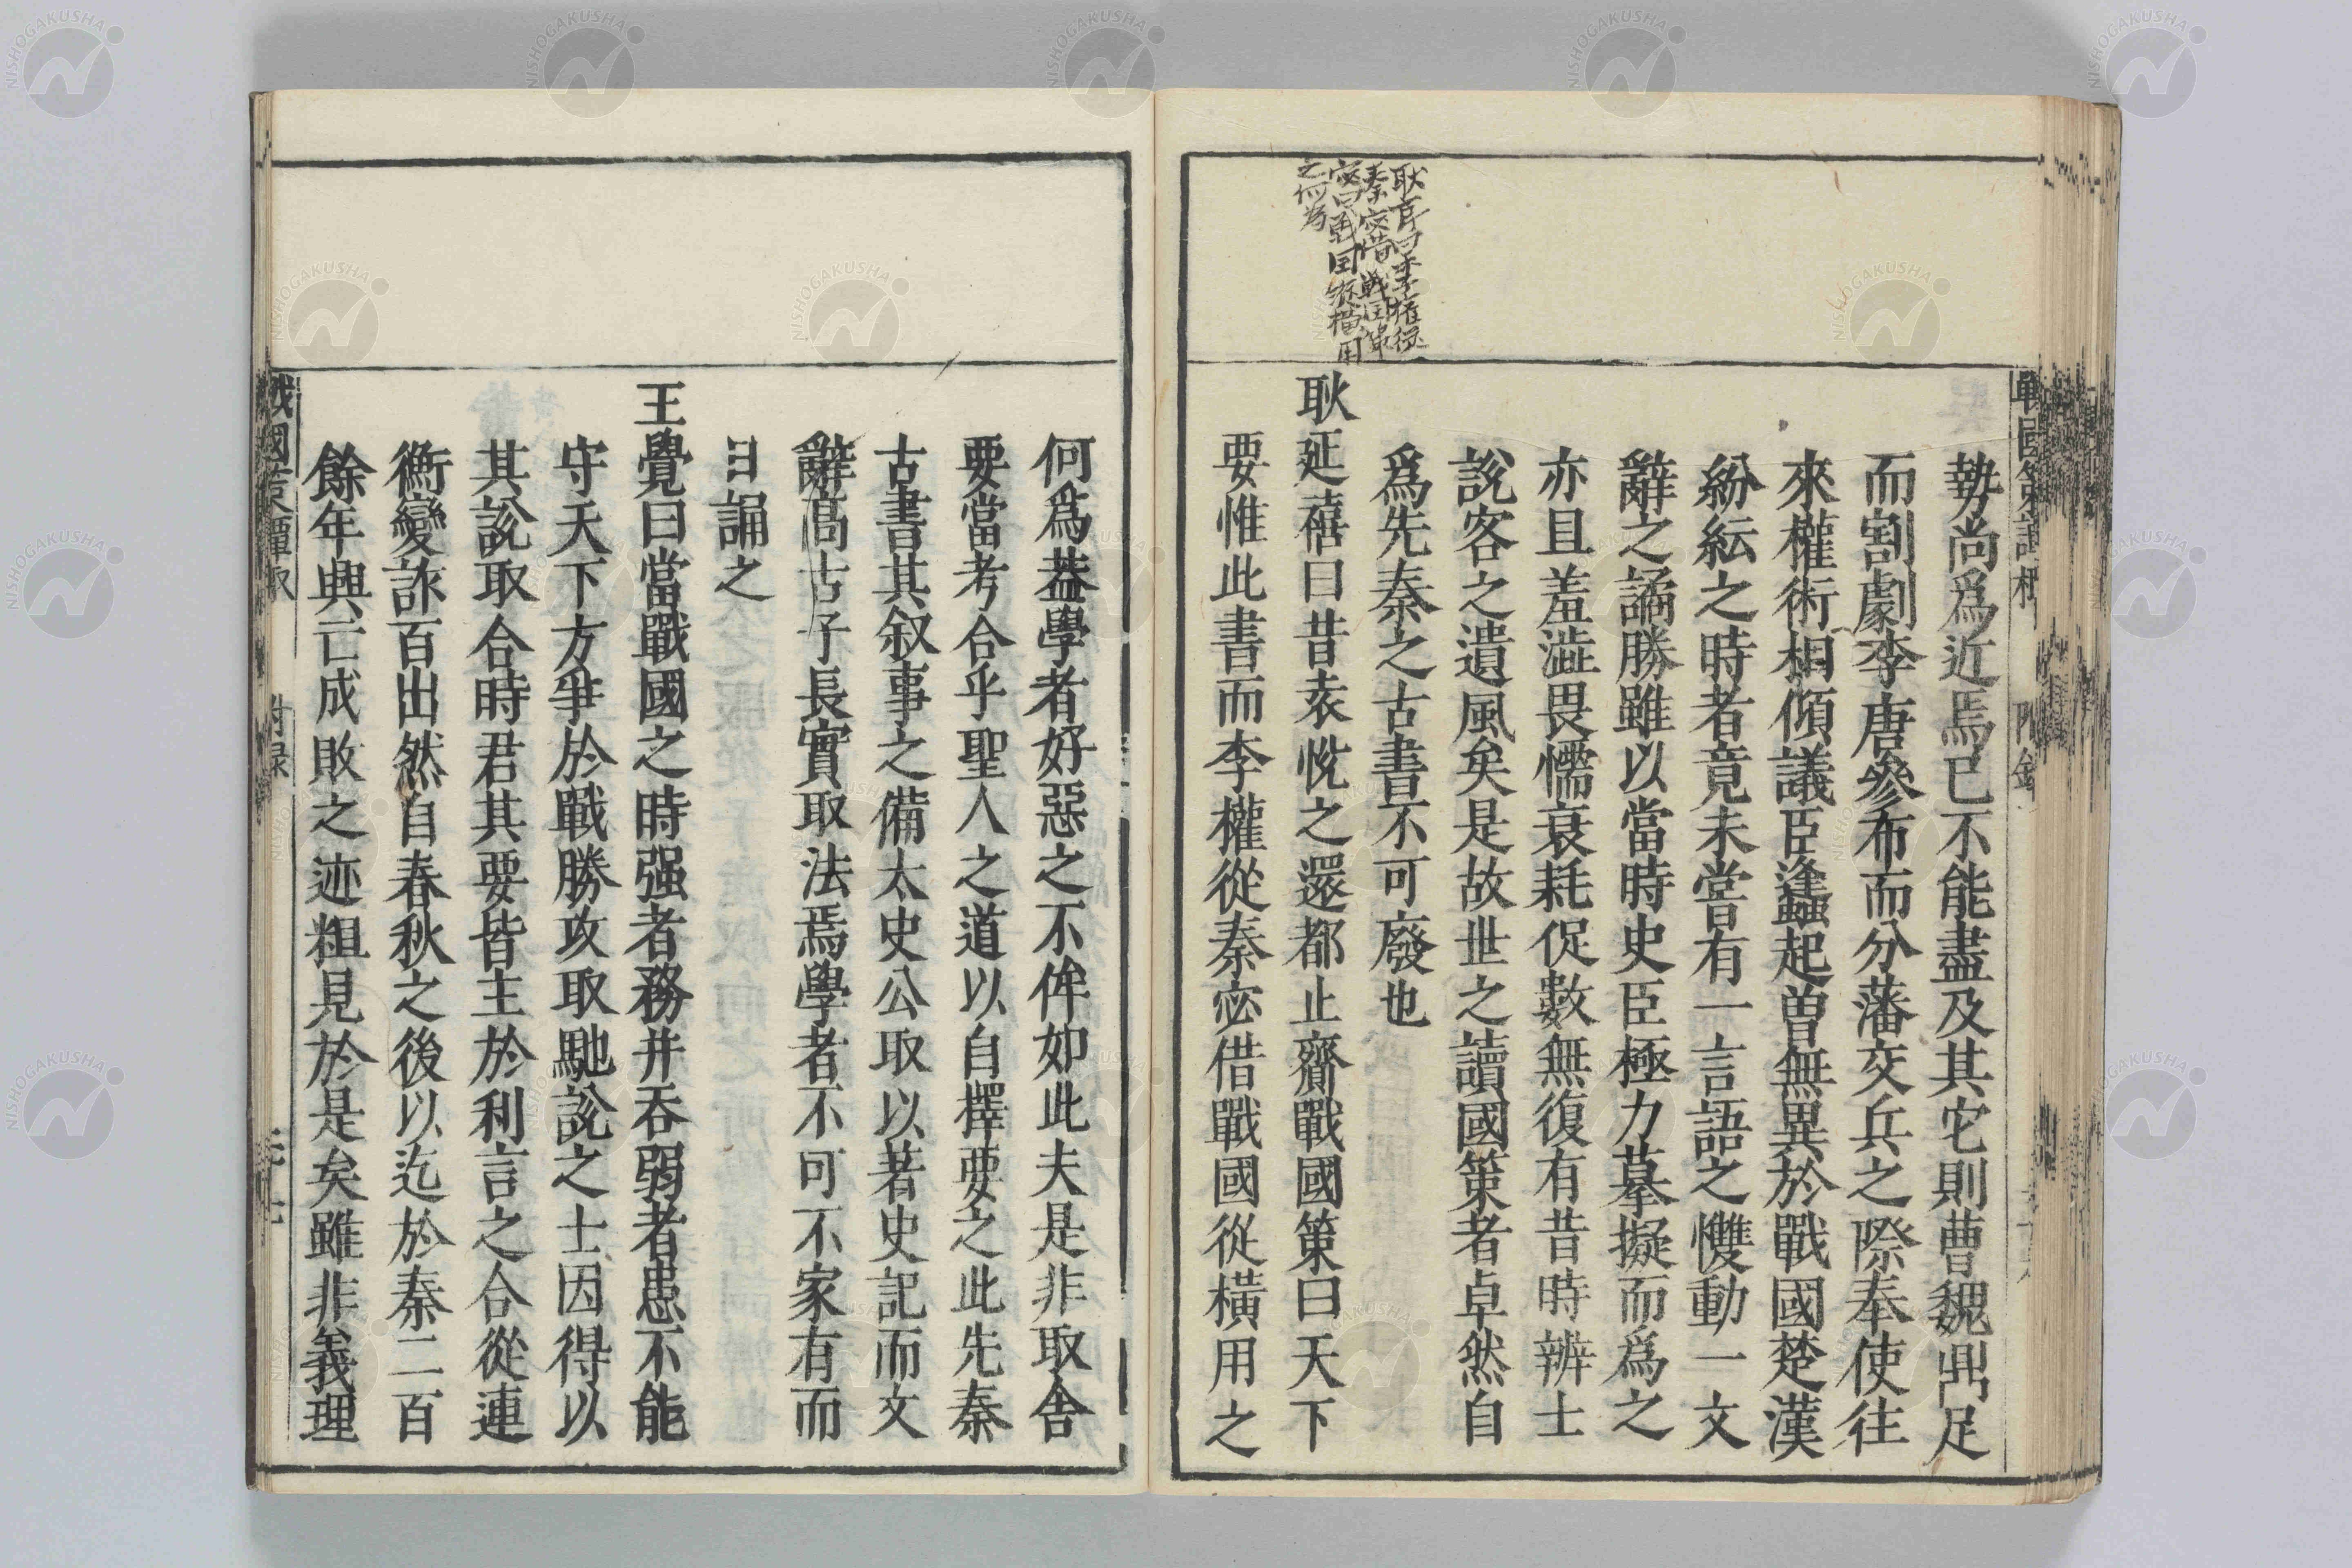 戰國策譚棷 附錄
勢尚爲近焉已不能盡及其它則曹魏鼎足
而割劇李唐參布而分藩交兵之際奉使往
來權術相傾議臣蠭起曽無異於戰國楚漢
紛紜之時者竟未嘗有一言語之雙動一文
辭之譎勝雖以當時史臣極力摹擬而爲之
亦且羞澁畏懦衰耗促數無復有昔時辨士
說客之遺風矣是故世之讀國策者卓然自
爲先秦之古書不可廢也
耿延禧曰昔袁悅之還都止齎戰國策曰天下
要惟此書而李權從秦宓借戰國從橫用之
秦宓借戰国策
宓曰戰国從橫用
之何為
何爲葢學者好惡之不侔如此夫是非取舍
要當考合乎聖人之道以自擇要之此先秦
古書其叙事之備太史公取以著史記而文
辭高古子長實取法焉學者不可不家有而
日誦之
王覺曰當戰國之時强者務并吞弱者患不能
守天下方爭於戰勝攻取馳說之士因得以
其說取合時君其要皆主於利言之合從連
衡變詐百出然自春秋之後以迄於秦二百
餘年興亡成敗之迹粗見於是矣雖非義理
戰國策譚棷 附録
NISHOGAKUSHA